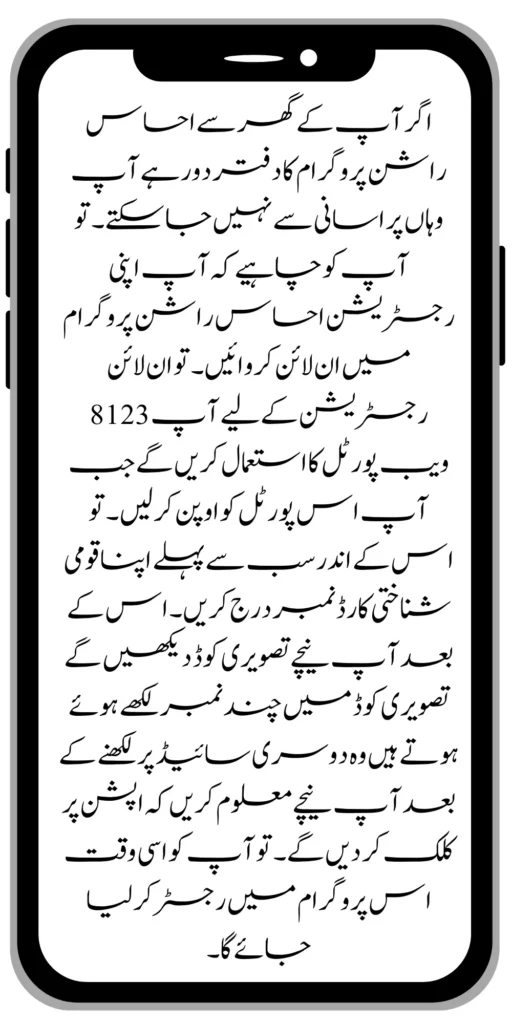 اگر آپ کے گھر سے احساس
راشن پروگرام کا دفتر دور ہے آپ
وہاں پر اسانی سے نہیں جا سکتے۔ تو
آپ کو چاہیے کہ آپ اپنی
رجسٹریشن احساس راشن پروگرام
میں ان لائن کروائیں۔ تو ان لائن
رجسٹریشن کے لیے آپ 8123
ویب پورٹل کا استعمال کریں گے جب
آپ اس پورٹل کو اوپن کر لیں۔ تو
اس کے اندر سب سے پہلے اپنا قومی
شناختی کارڈ نمبر درج کریں۔ اس کے
بعد آپ نیچے تصویری کوڈ دیکھیں گے
تصویری کوڈ میں چند نمبر لکھے ہوئے
ہوتے ہیں وہ دوسری سائیڈ پر لکھنے کے
بعد آپ نیچے معلوم کریں کہ اپشن پر
کلک کر دیں گے۔ تو آپ کو اسی وقت
اس پروگرام میں رجسٹر کر لیا
جائے گا۔